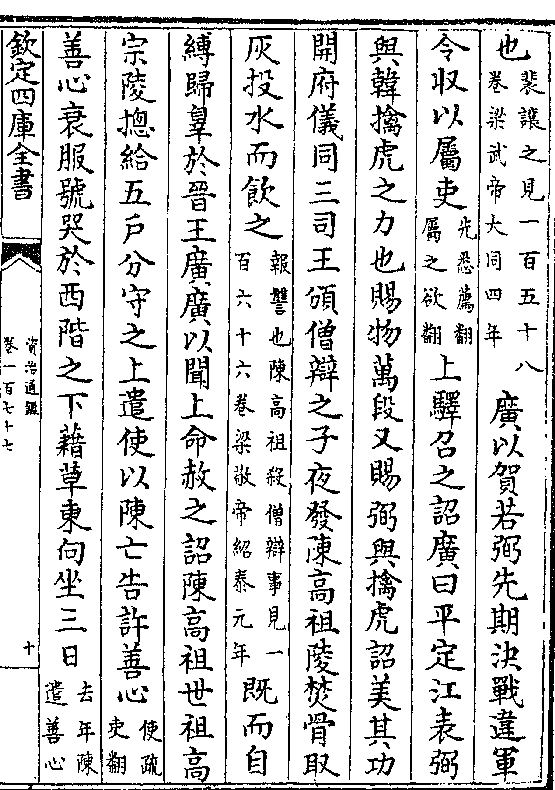 也裴讓之見一百五十八卷梁武帝大同四年廣以賀若弼先期決戰違軍
令収以屬吏先悉薦翻屬之欲翻上驛召之詔廣曰平定江表弼
與韓擒虎之力也賜物萬段又賜弼與擒虎詔美其功
開府儀同三司王頒僧辯之子夜發陳高祖陵焚骨取
灰投水而飲之報讐也陳高祖殺僧辯事見一百六十六卷梁敬帝紹泰元年既而自
縛歸辠於晉王廣廣以聞上命赦之詔陳高祖世祖高
宗陵摠給五戶分守之上遣使以陳亡告許善心使疏吏翻
善心衰服號哭於西階之下藉草東向坐三日去年陳遣善心
欽定四庫全書
資治通鑑
卷一百七十七
十